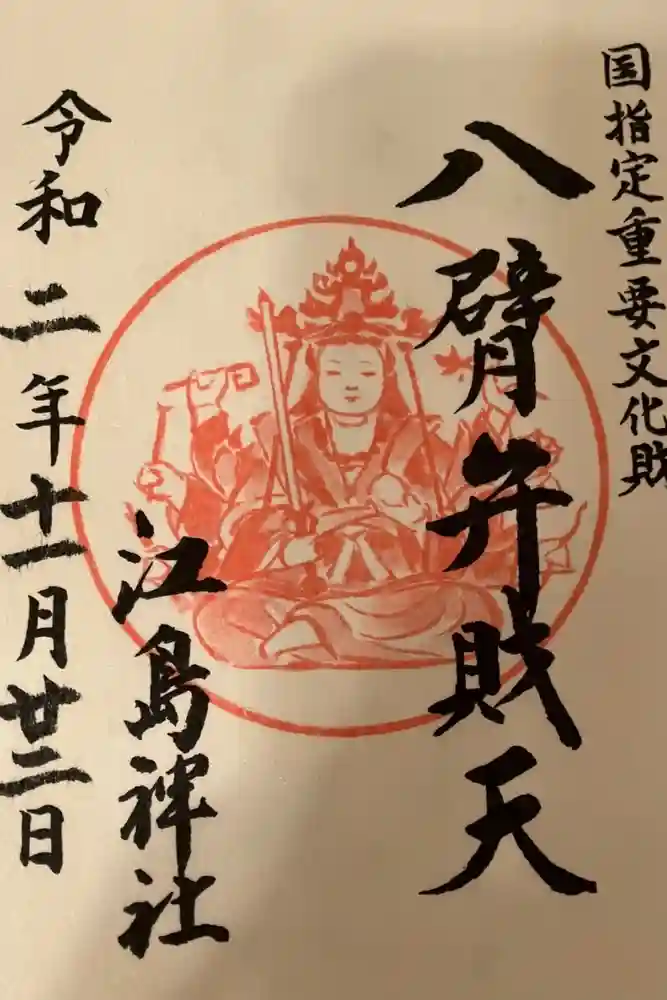 国指定重要文化財
八臂弁財天
江島神社
令和二年十一月廿二日